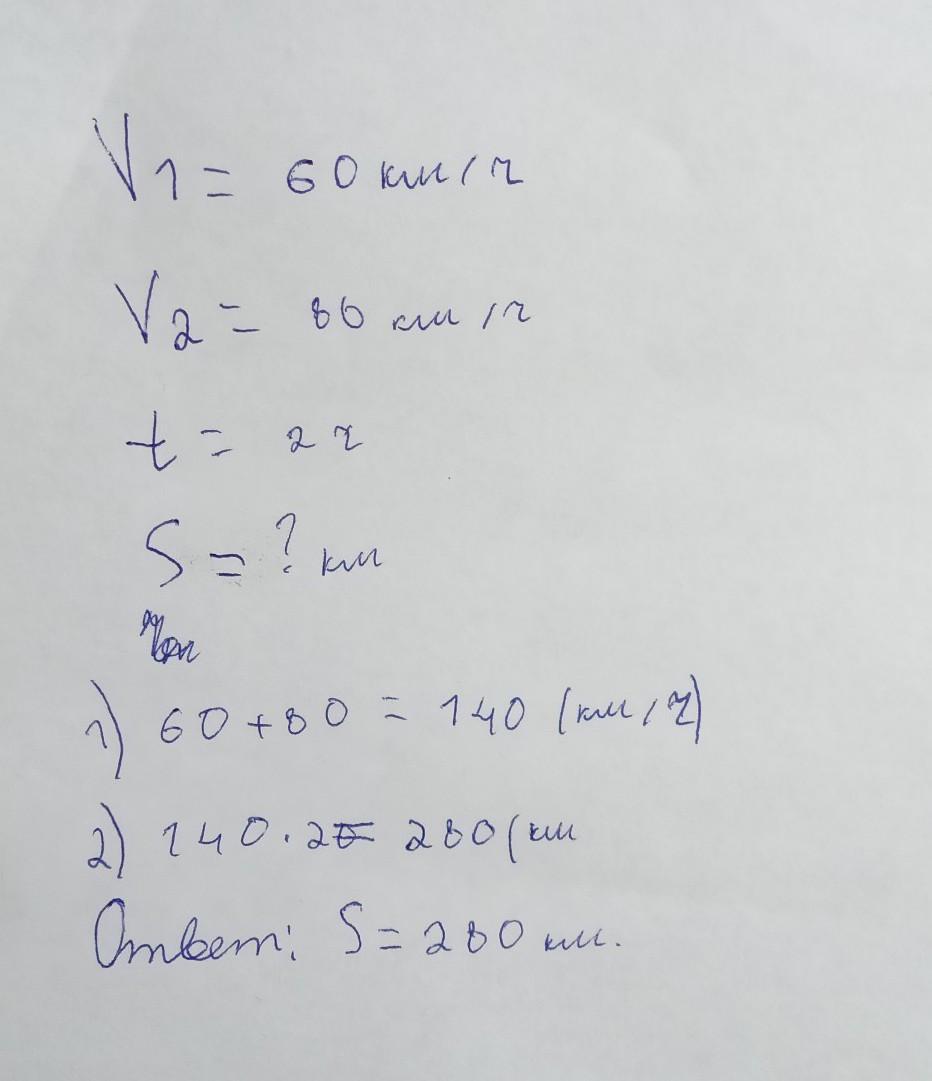 V1 = 60 км/ч
V2 = 80 км/ч
t = 2 ч
S = ? км
1) 60 + 80 = 140 (км/ч)
2) 140 · 2 = 280 (км
Ответ: S = 280 км.